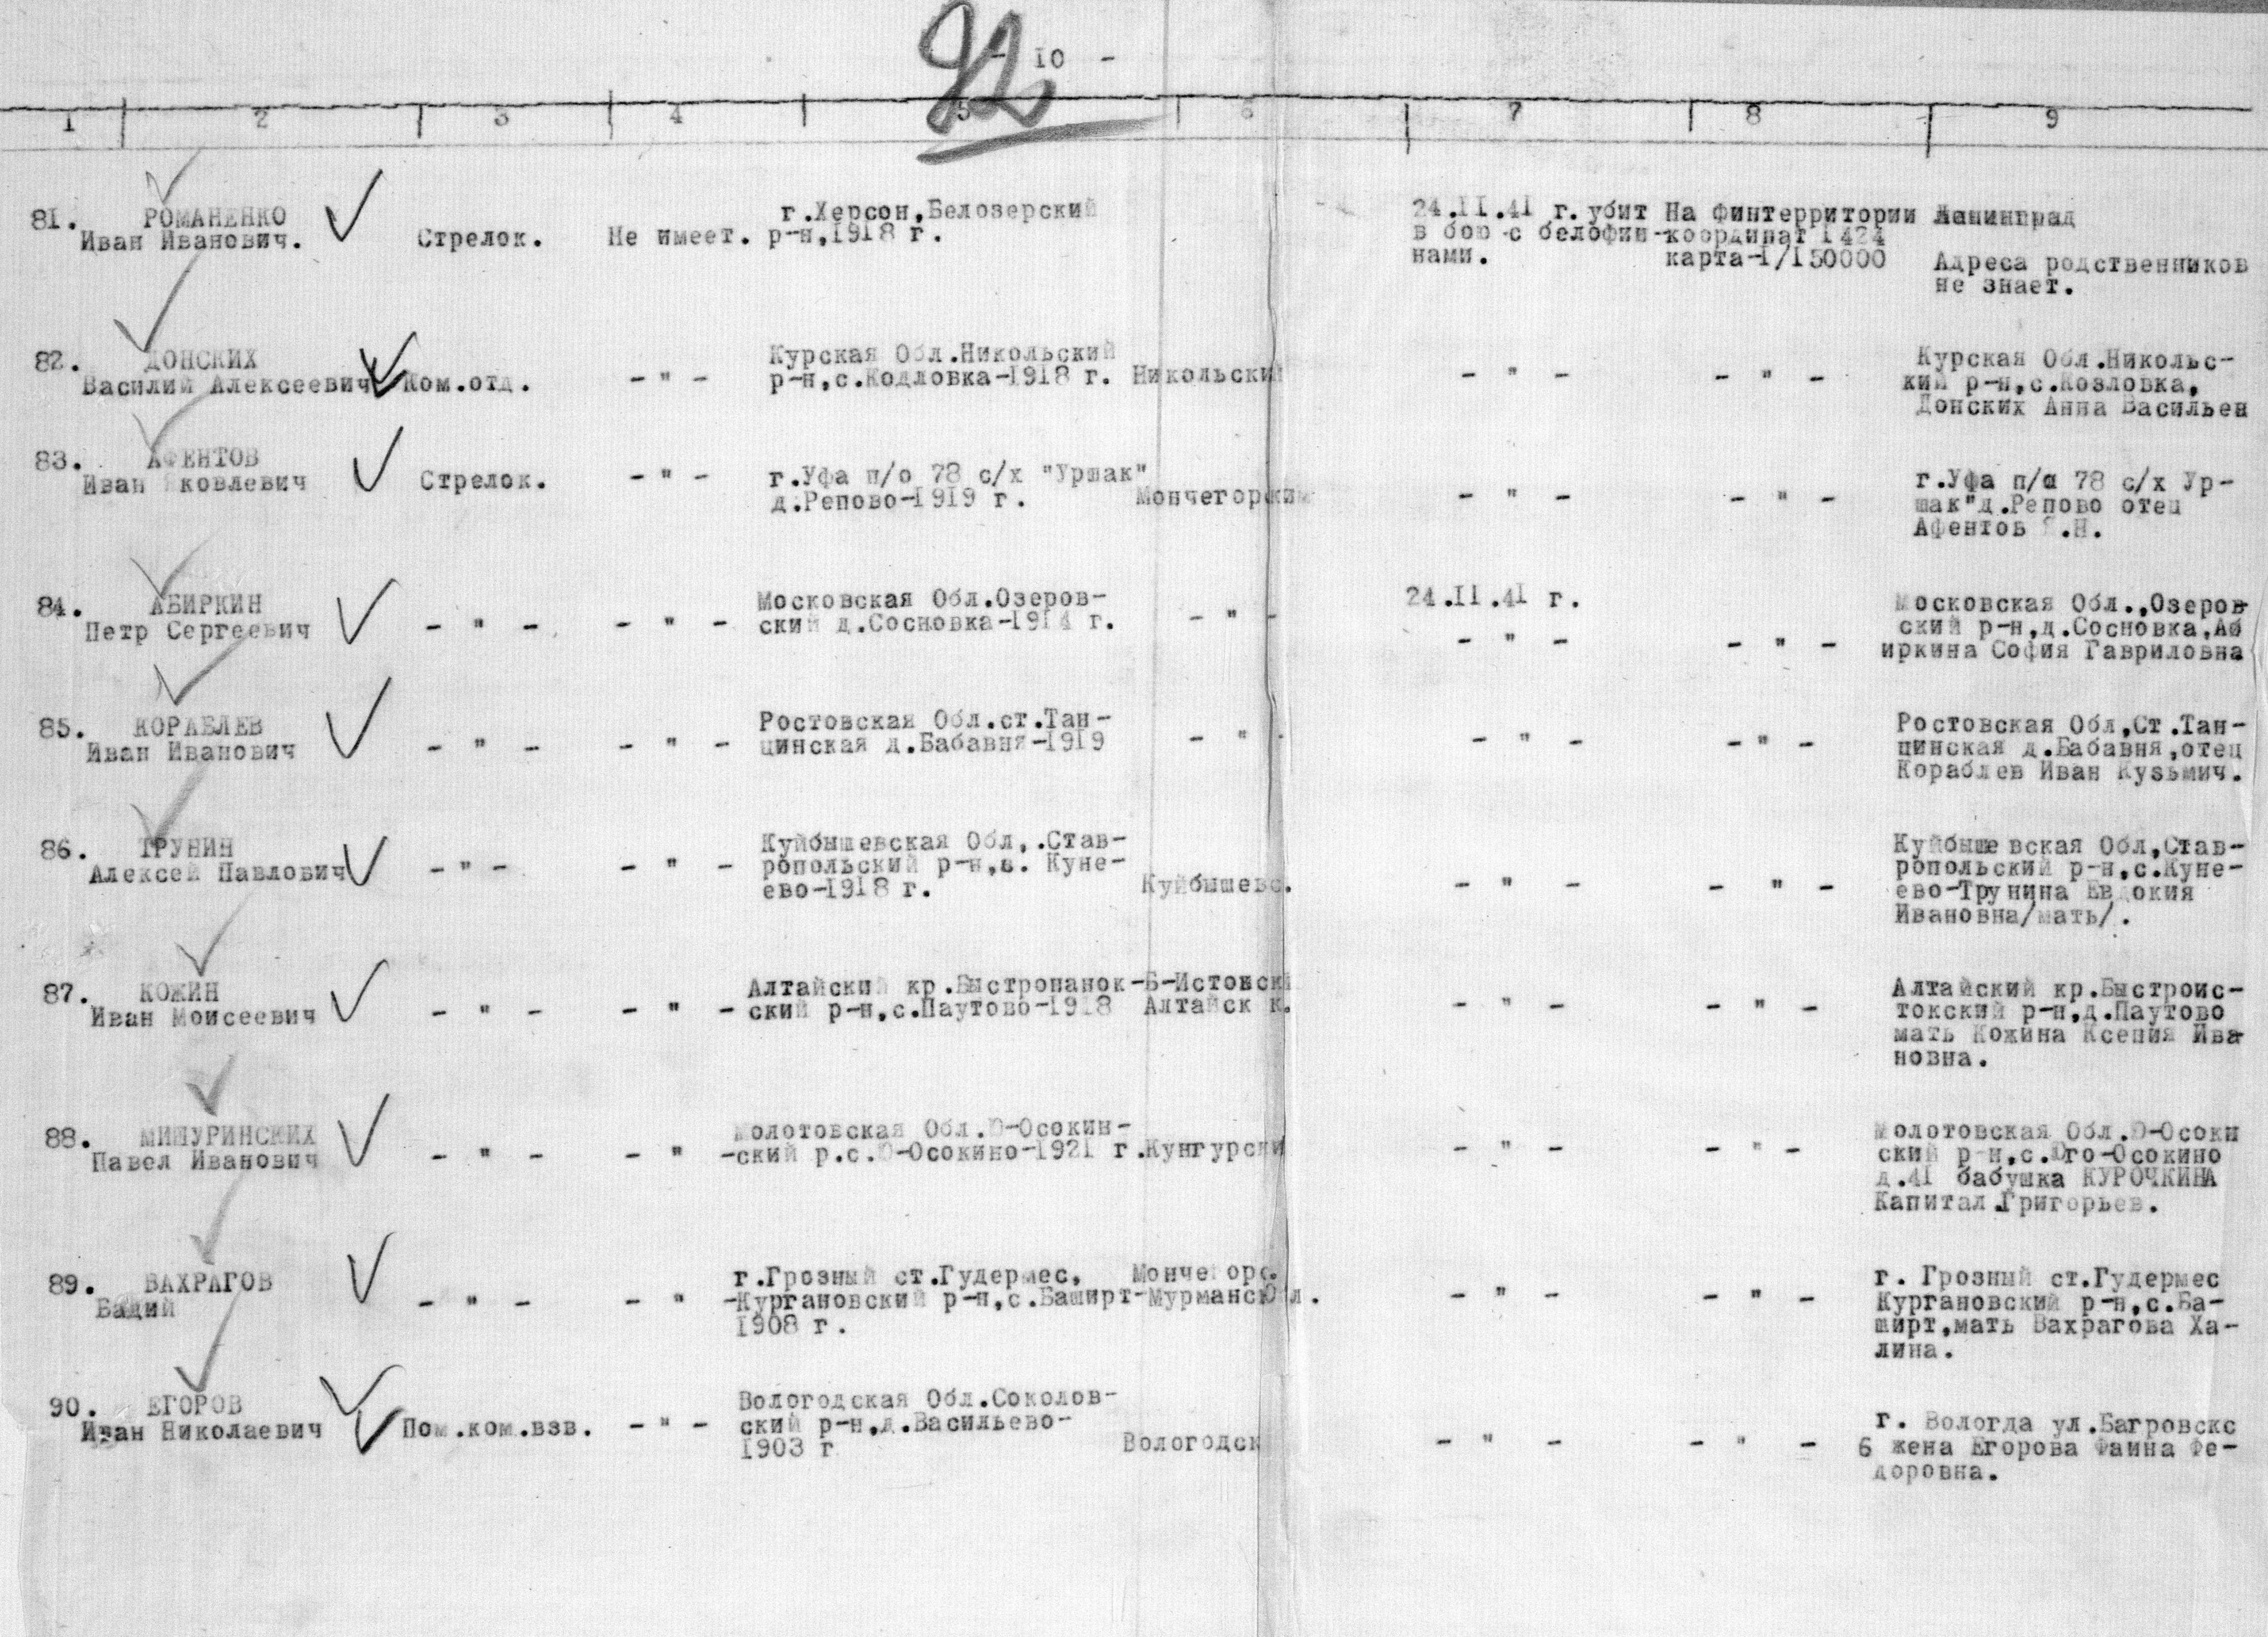 92
- 10 -
1 2 3 4 5 6 7 8 9
81. РОМАНЕНКО
Иван Иванович.
Стрелок.
Не имеет.
г.Херсон,Белозерский
р-н,1918 г.
24.II.41 г. убит
в бою с белофин-
нами.
На финтерритории
координат 1424
карта-I/150000
Ленинград
Адреса родственников
не знает.
82. ДОНСКИХ
Василий Алексеевич
Ком.отд.
- " -
Курская Обл.Никольский
р-н,с.Кодловка-1918 г.
Никольский
- " -
- " -
Курская Обл.Никольс-
кий р-н,с.Козловка,
Донских Анна Васильев
83. АФЕНТОВ
Иван Яковлевич
Стрелок.
- " -
г.Уфа п/о 78 с/х "Уршак"
д.Репово-1919 г.
Мончегорским
- " -
- " -
г.Уфа п/о 78 с/х Ур-
шак"д.Репово отец
Афентов Я.Н.
84. АБИРКИН
Петр Сергеевич
- " -
- " -
Московская Обл.Озеров-
ский д.Сосновка-1914 г.
- " -
24.II.41 г.
- " -
- " -
Московская Обл.,Озеров-
ский р-н,д.Сосновка,Аб
иркина София Гавриловна
85. КОРАБЛЕВ
Иван Иванович
- " -
- " -
Ростовская Обл.ст.Тан-
цинская д.Бабавня-1919
- " -
- " -
- " -
Ростовская Обл,Ст.Тан-
цинская д.Бабавня,отец
Кораблев Иван Кузьмич.
86. ТРУНИН
Алексей Павлович
- " -
- " -
Куйбышевская Обл,.Став-
ропольский р-н,с. Куне-
ево-1918 г.
Куйбышевс.
- " -
- " -
Куйбышевская Обл,Став-
ропольский р-н,с.Куне-
ево-Трунина Евдокия
Ивановна/мать/.
87. КОЖИН
Иван Моисеевич
- " -
- " -
Алтайский кр.Быстропанок-
ский р-н,с.Паутово-1918
Б-Истовски
Алтайск к.
- " -
- " -
Алтайский кр.Быстроис-
токский р-н,д.Паутово
мать Кожина Ксения Ива-
новна.
88. МИШУРИНСКИХ
Павел Иванович
- " -
- " -
Молотовская Обл.Ю-Осокин-
ский р.с.Ю-Осокино-1921 г.
Кунгурски
- " -
- " -
Молотовская Обл.Ю-Осоки
ский р-н,с.Юго-Осокино
д.41 бабушка КУРОЧКИНА
Капитал.Григорьев.
89. ВАХРАГОВ
Бадий
- " -
- " -
г.Грозный ст.Гудермес,
Кургановский р-н,с.Баширт-
1908 г.
Мончегорс.
Мурманс Ол.
- " -
- " -
г. Грозный ст.Гудермес
Кургановский р-н,с.Ба-
ширт,мать Вахрагова Ха-
лина.
90. ЕГОРОВ
Иван Николаевич
Пом.ком.взв.
- " -
Вологодская Обл.Соколов-
ский р-н,д.Васильево-
1903 г
Вологодск
- " -
- " -
г. Вологда ул.Багровскс
6 жена Егорова Фаина Фе-
доровна.